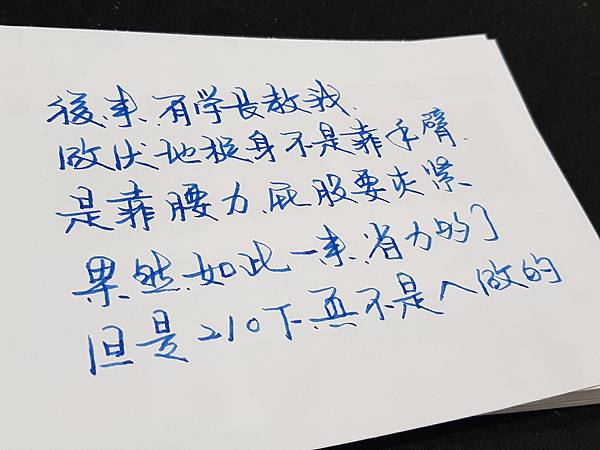 後来,有学長教我,
做伏地挺身不是靠手臂,
是靠腰力,屁股要夾緊、
果然,如此一来,省力的了
但是210下,真不是人做的